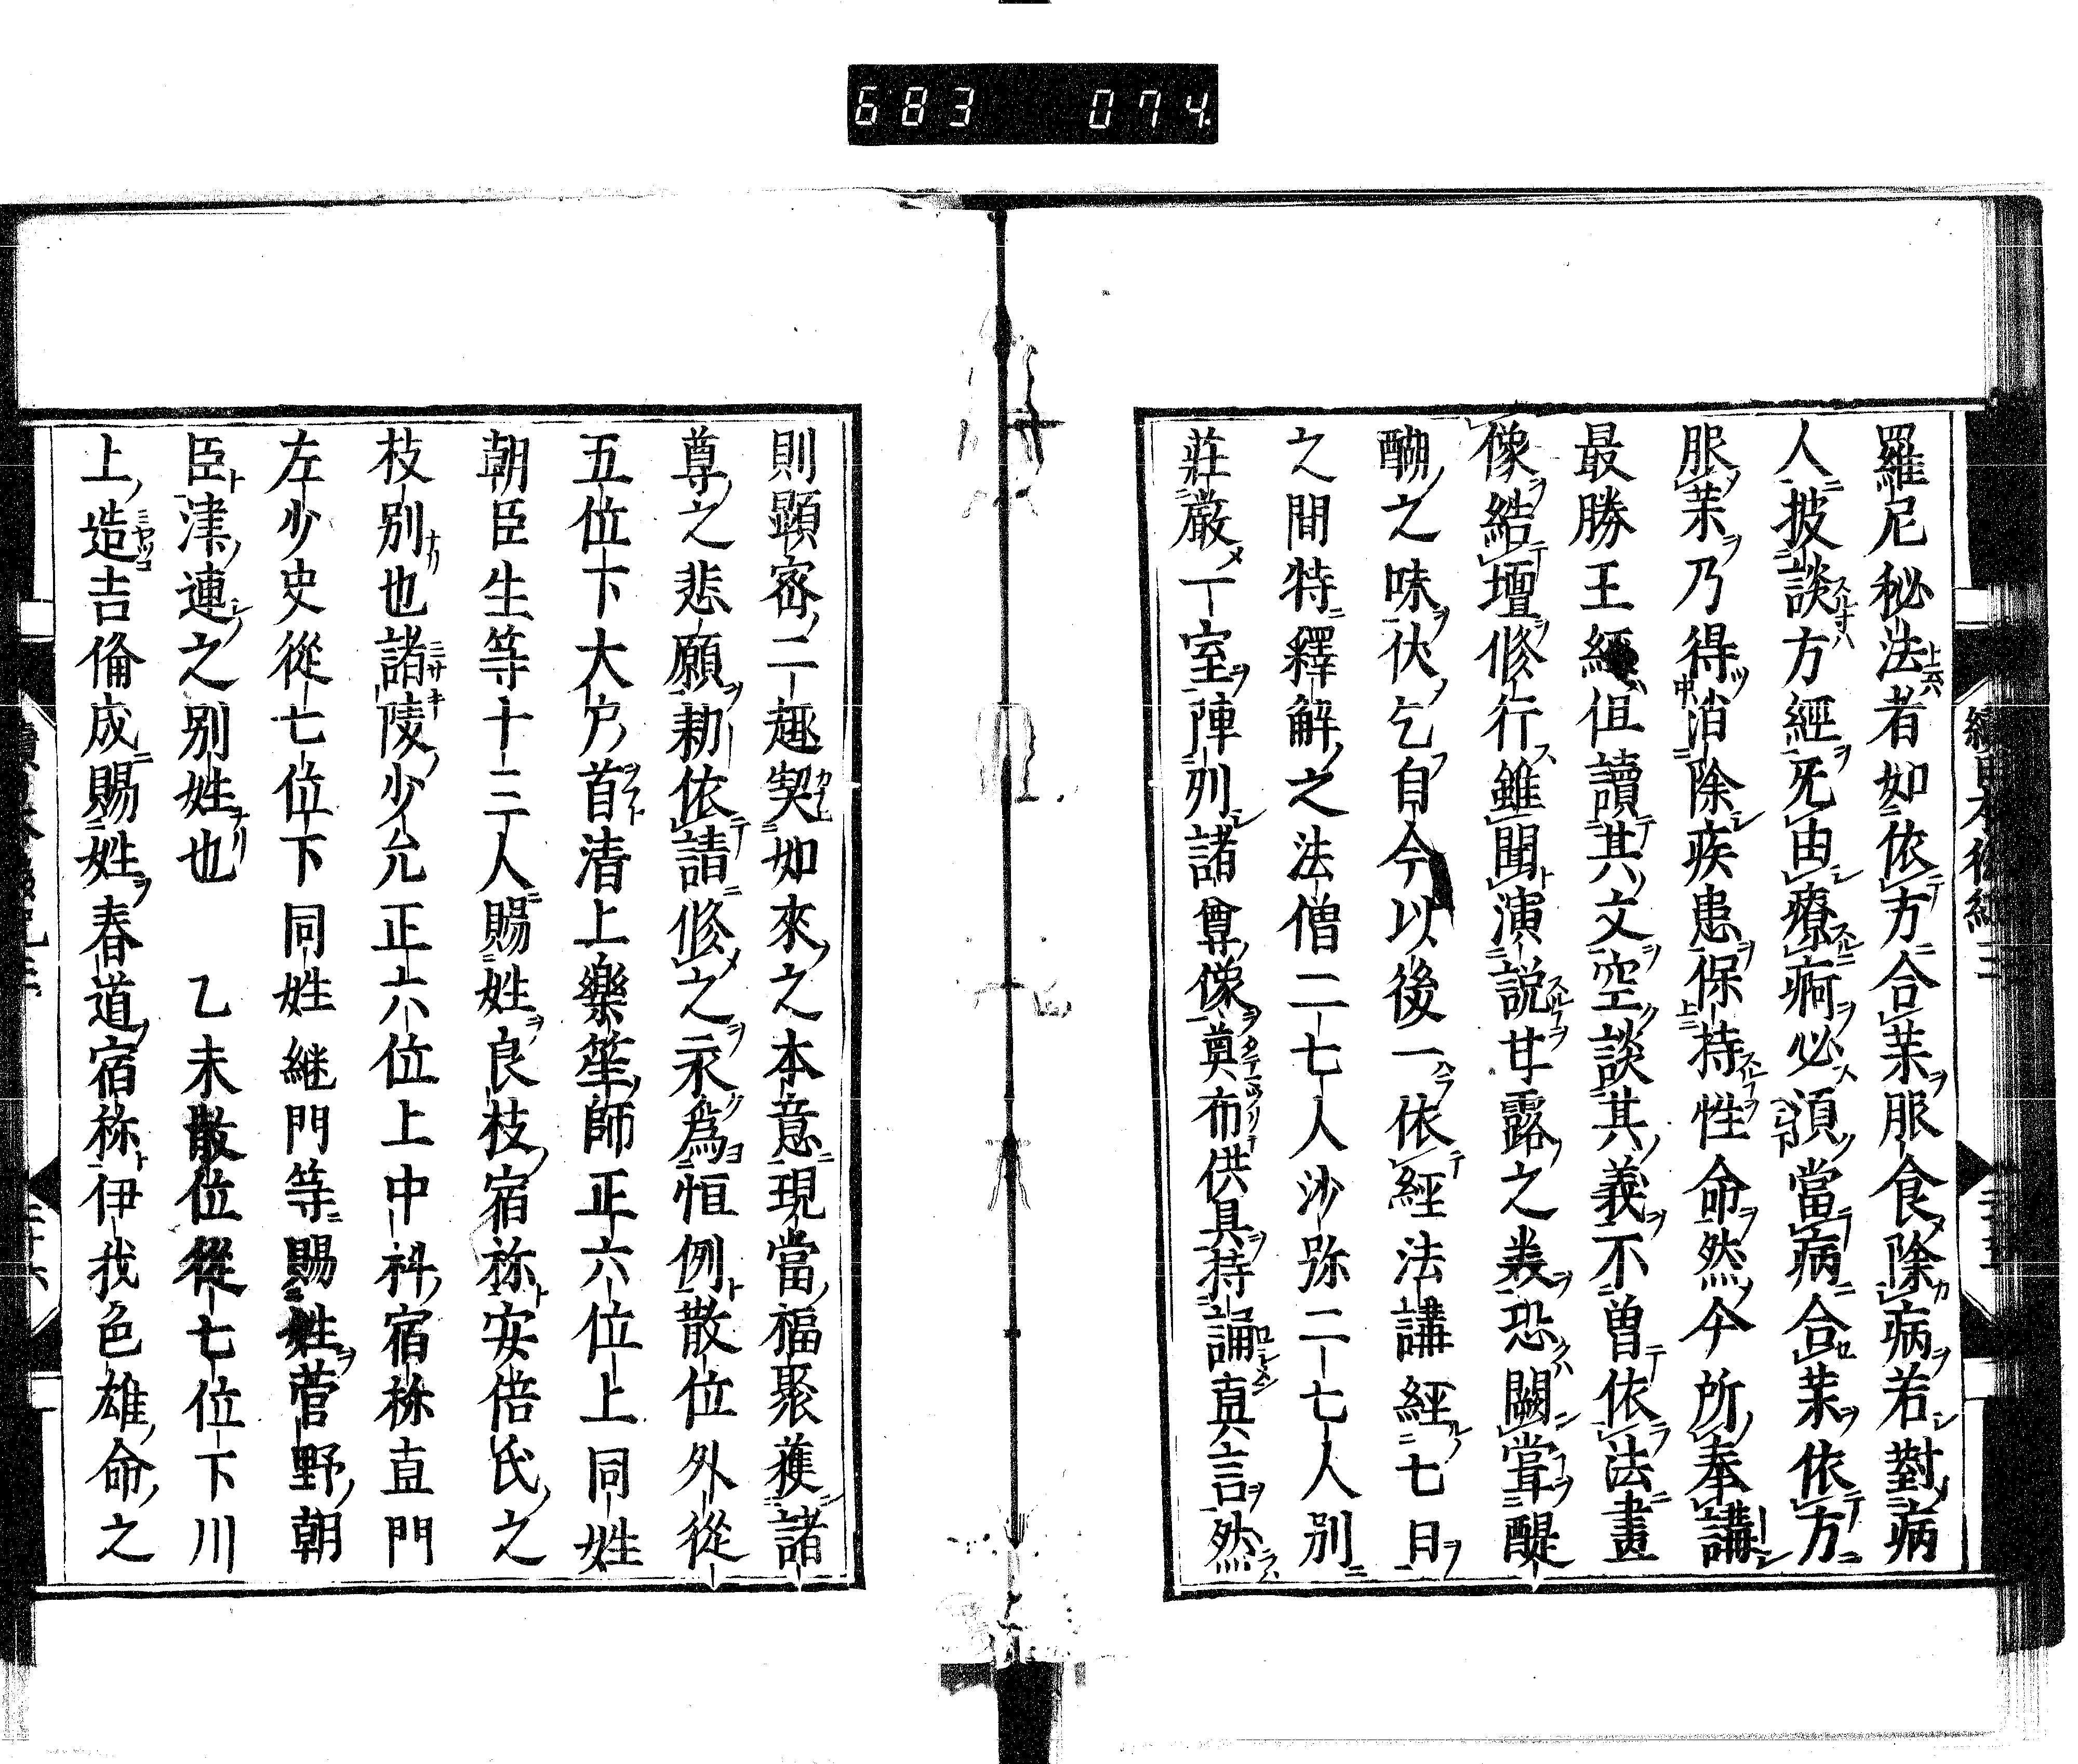 683 074
羅尼秘法者如依方合藥服食除病若對病
人披談方經死由療痾必須當病合藥依方
服藥乃得消除疾患保持性命然今所奉講
最勝王經但讀其文空談其義不曾依法畫
像結壇修行雖聞演説甘露之義恐闕甞醍
醐之味伏乞自今以後一依經法講經七日
之間特釋解之法僧二七人沙弥二七人別
莊嚴一室陣列諸尊像奠布供具持誦真言然
則顕密二趣契如來之本意現當福聚獲諸
尊之悲願勅依請修之永爲恒例散位外從
五位下大戸首清上樂笙師正六位上同姓
朝臣生等十三人賜姓良枝宿祢安倍氏之
枝別也諸陵少允正六位上中科宿祢直門
左少史從七位下同姓継門等賜姓菅野朝
臣津連之別姓也 乙未散位從七位下川
上造吉備成賜姓春道宿祢伊我色雄命之